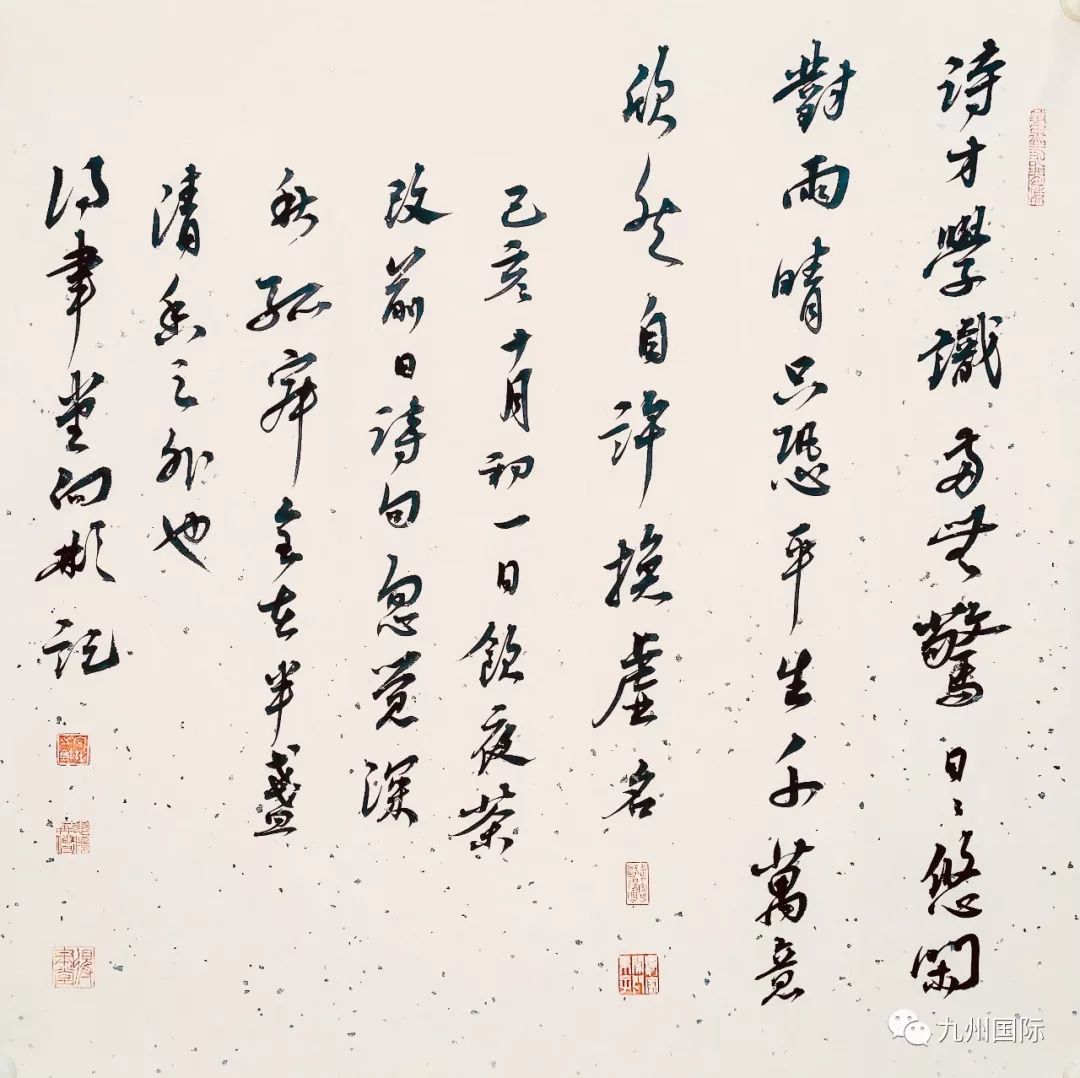 詩才學識兩無驚日〻悠閑
對雨晴只恐平生千萬意
欣然自許換虛名
己亥十月初一日飲夜茶
改前日詩句忽覺深
秋孤寂全在半盞
清香之外也
得聿堂向彬記
九州国际